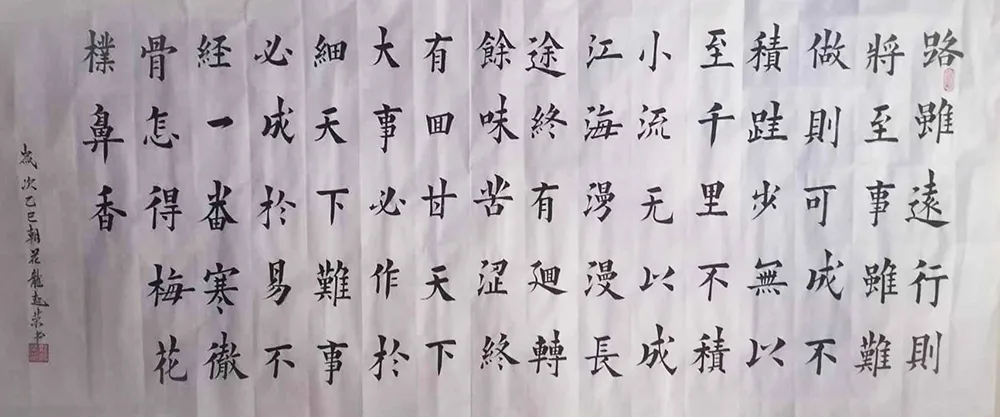 路雖遠行則
將至事雖難
做則可成不
積跬步無以
至千里不積
小流无以成
江海漫漫長
途終有廻轉
餘味苦涩終
有囬甘天下
大事必作於
細天下難事
必成於易不
経一番寒徹
骨怎得梅花
樸鼻香
歲次乙巳朝花龍书